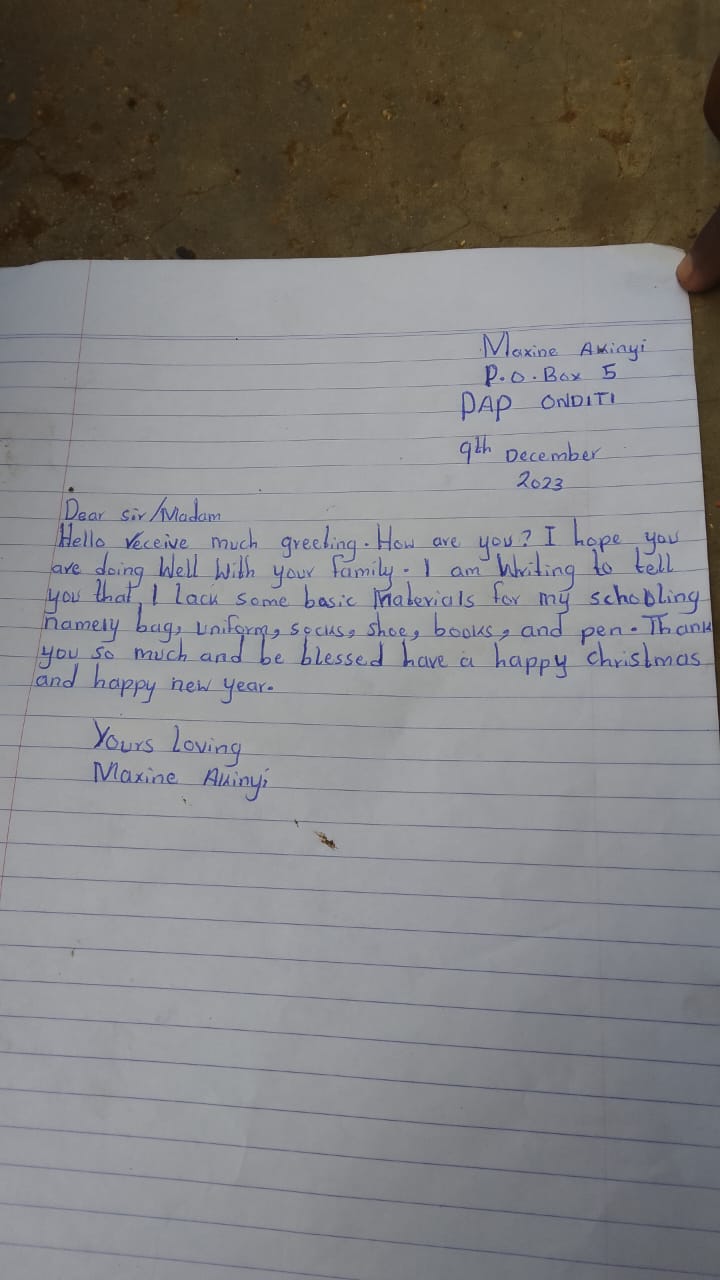 Maxine Akinyi
P.O. Box 5
PAP ONDITI
9th December
2023
Dear Sir/Madam
Hello receive much greeting. How are you? I hope you
are doing Well With your family. I am Writing to tell
you that, I lack some basic Materials for my schooling
namely bag, uniform, socks, shoe, books, and pen. Thank
you so much and be blessed have a happy christmas
and happy new year.
Yours Loving
Maxine Akinyi